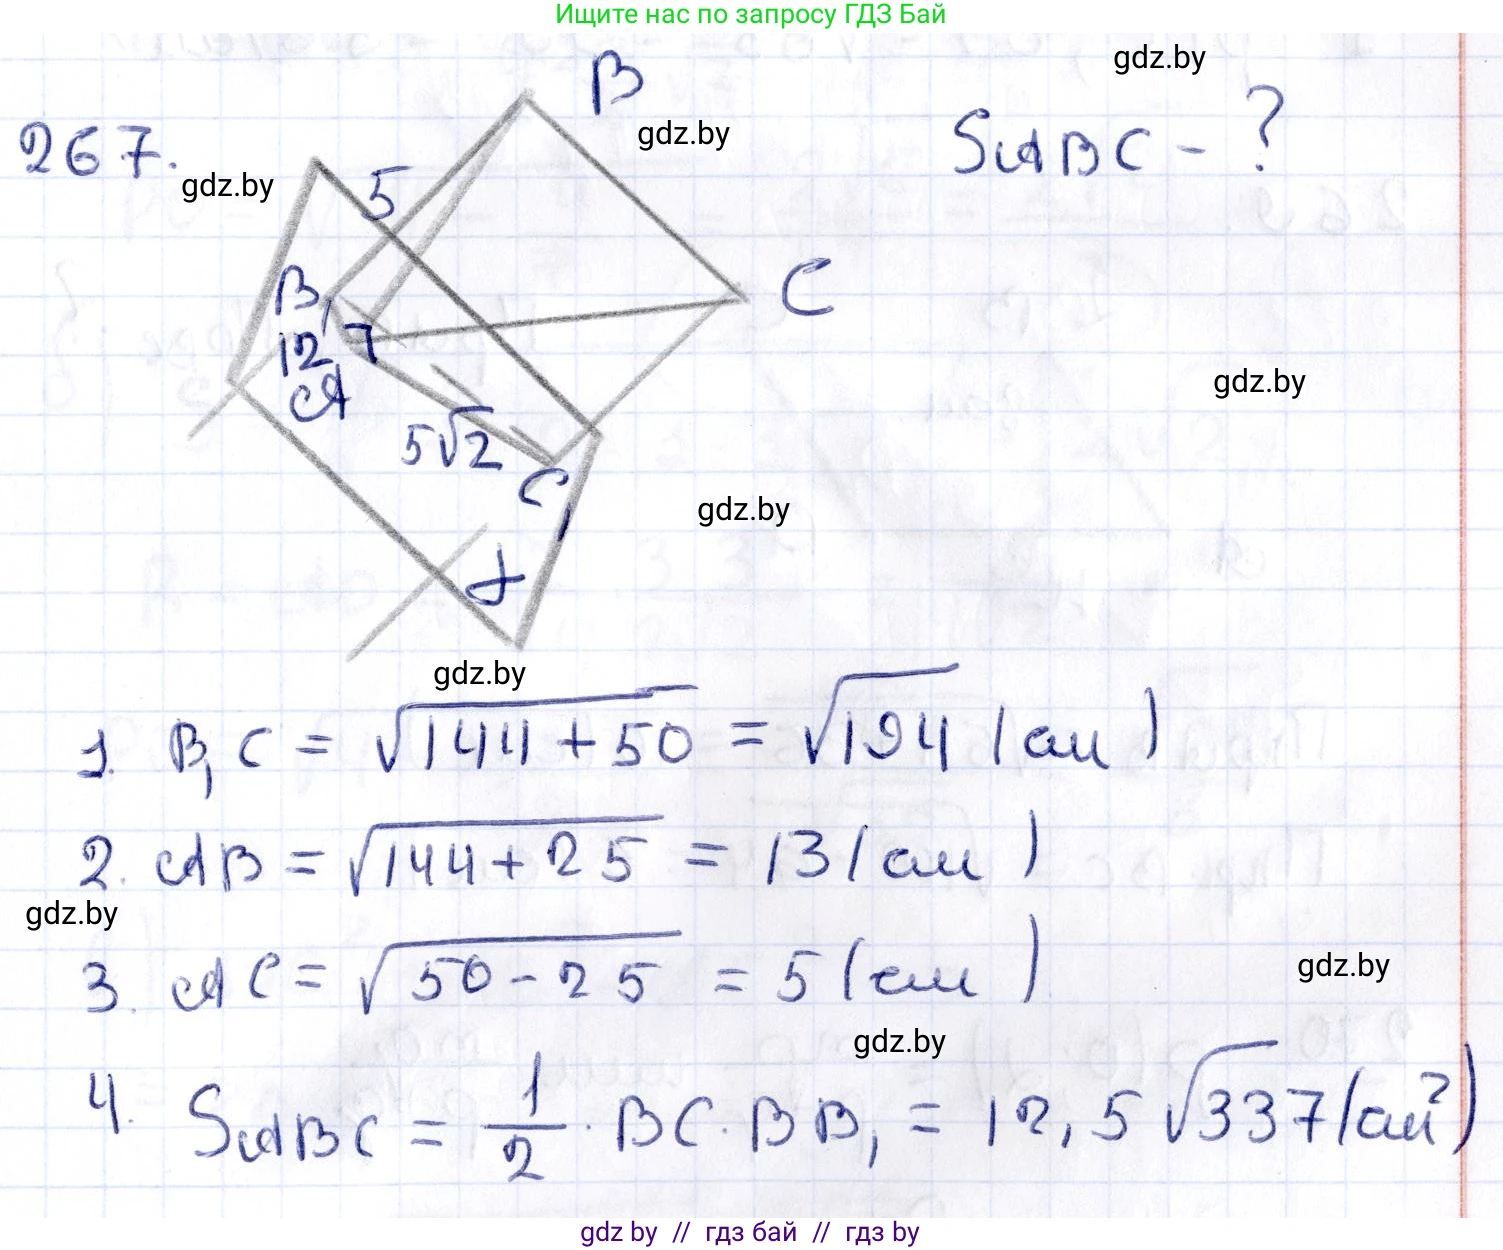 Ищите нас по запросу ГДЗ Бай
gdz.by
B
gdz.by
267.
SABC - ?
gdz.by
5
B₁
C
12
7
gdz.by
A
5√2
C₁
gdz.by
gdz.by
1. B₁C = √144+50 = √194 (см)
2. AB = √144+25 = 13 (см)
gdz.by
3. AC = √50-25 = 5 (см)
gdz.by
gdz.by
4. SABC = 1/2 · BC · BB₁ = 12,5√337 (см²)
gdz.by // гдз бай // гдз by